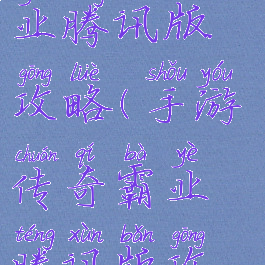 业腾讯版
gōng lüè shǒu yóu
攻略(手游
chuán qí bà yè
传奇霸业
téng xùn bǎn gōng
腾讯版攻